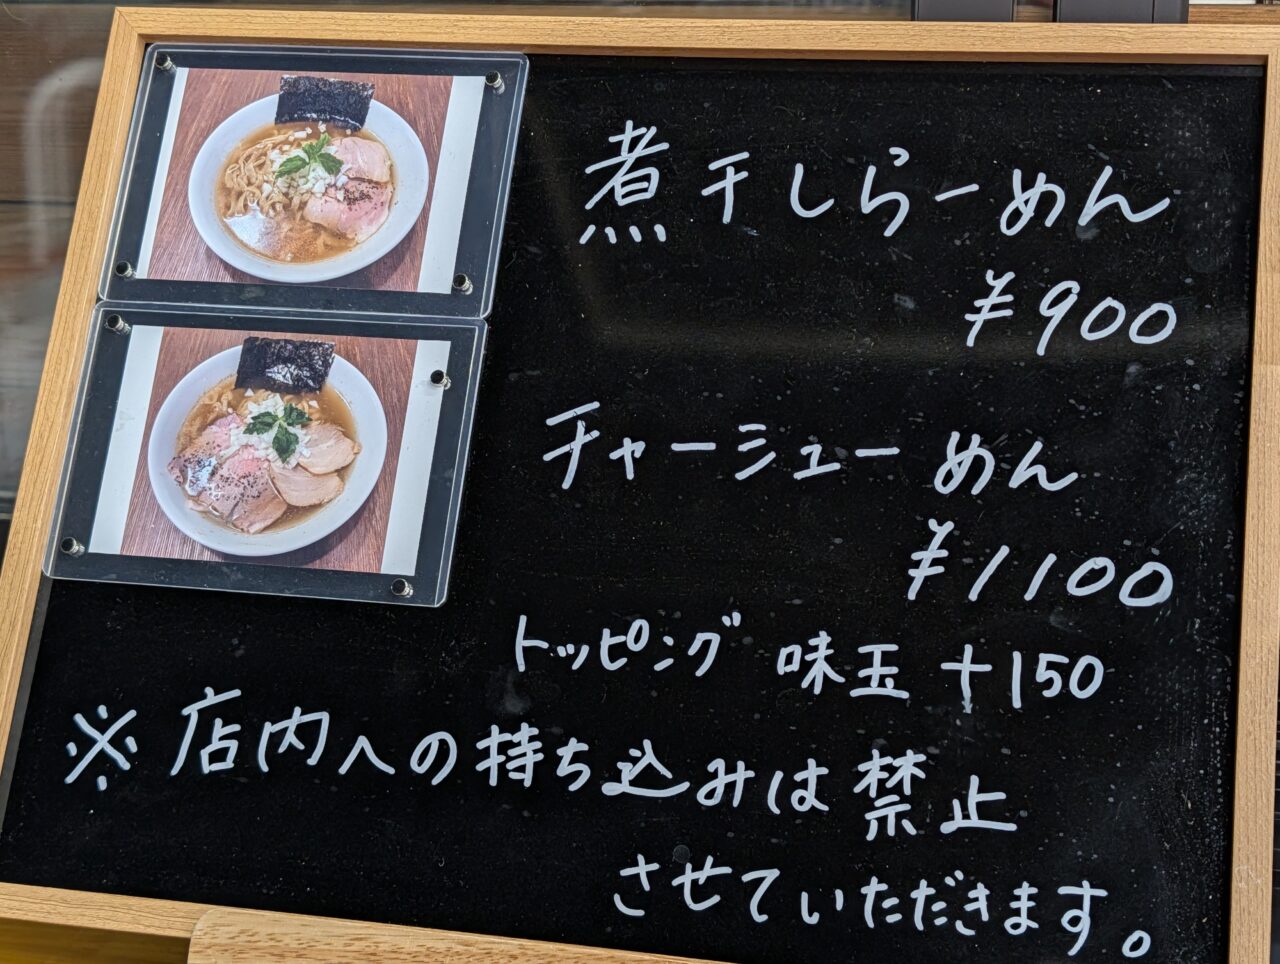 煮干しらーめん
¥900
チャーシューめん
¥1100
トッピング 味玉 +150
※店内への持ち込みは禁止
させていただきます。